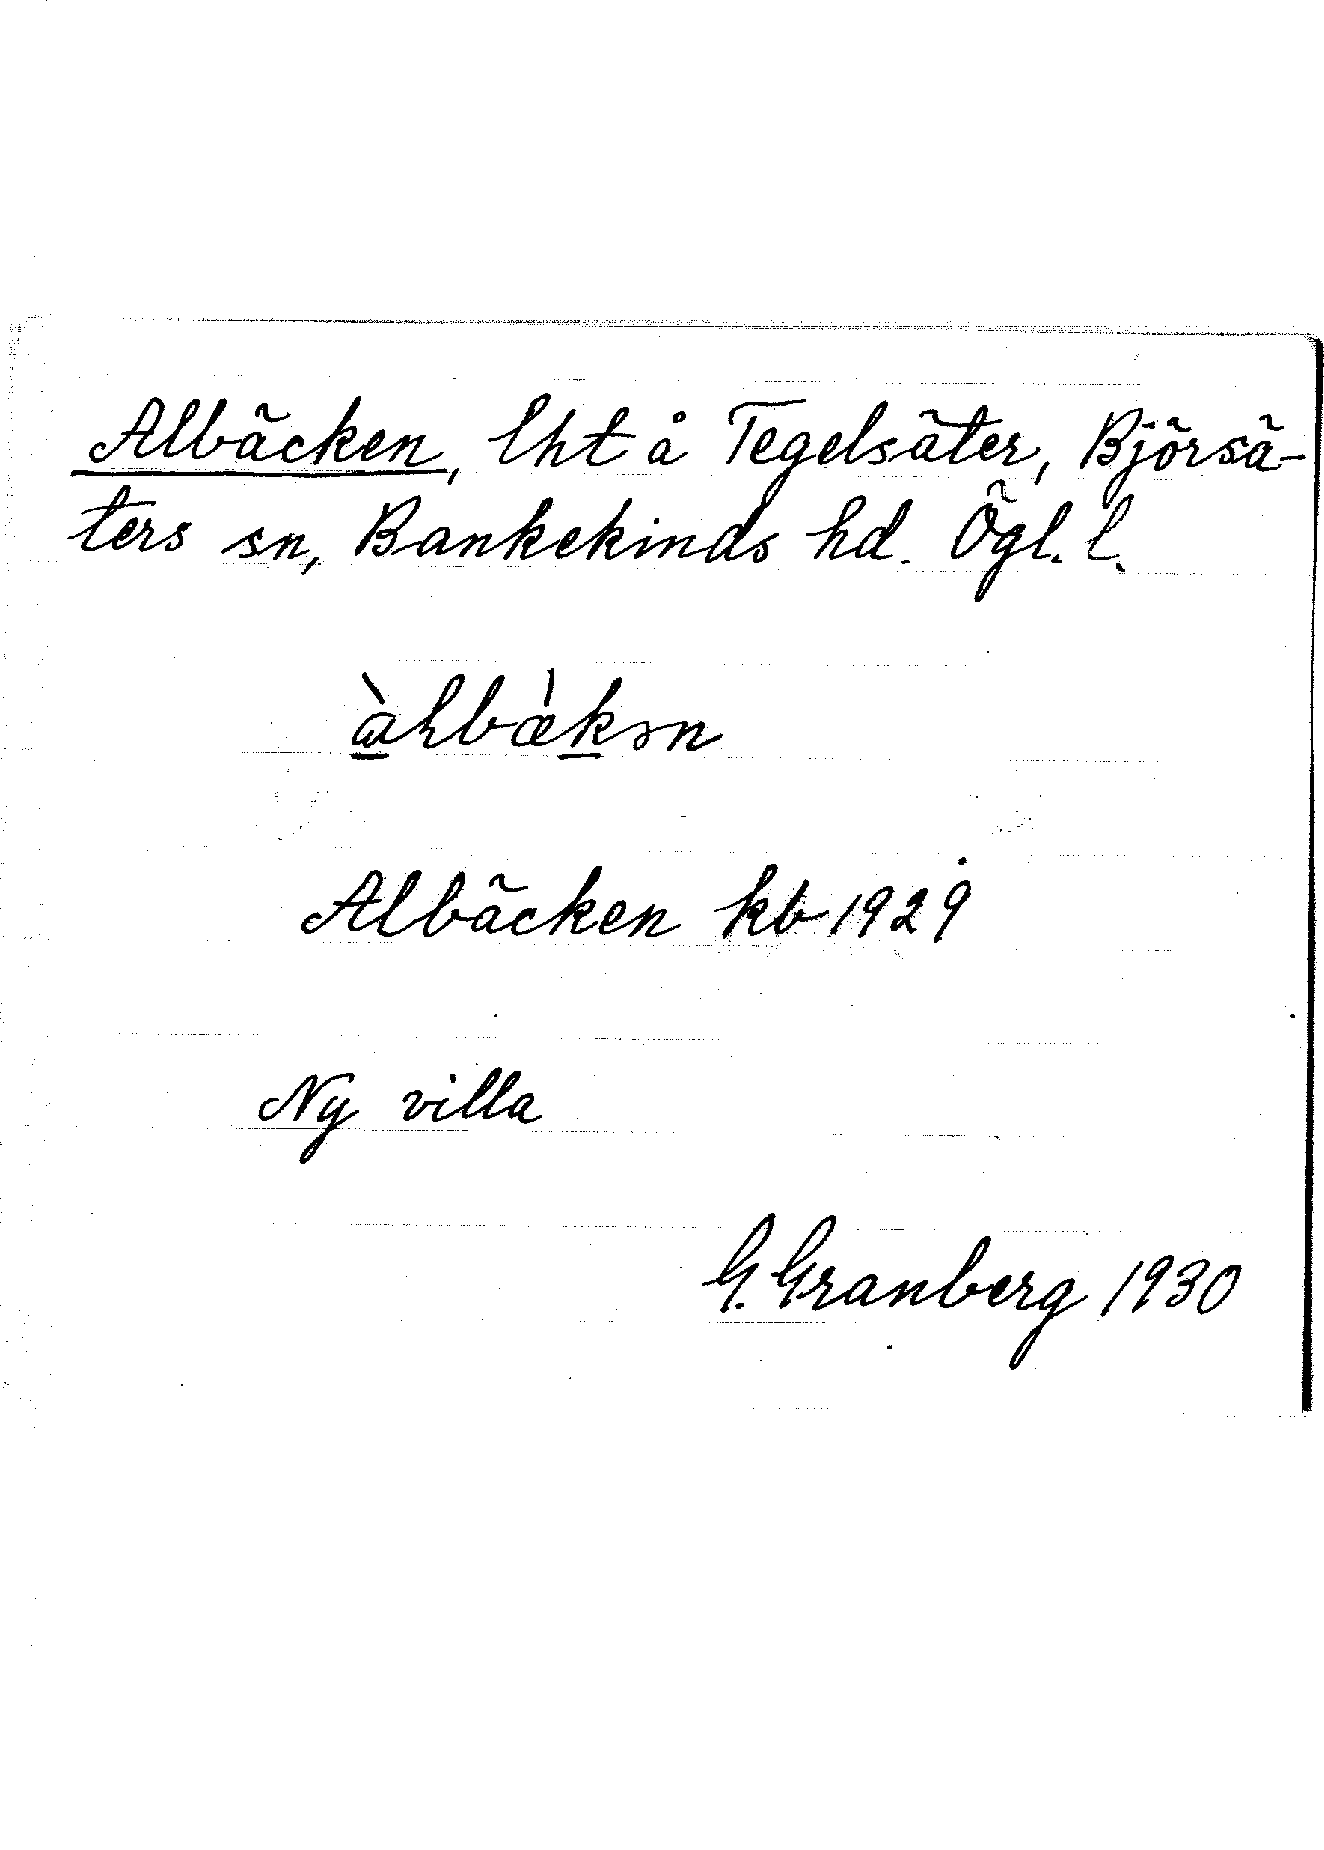 Albäcken, lht å Tegelsäter, Björsä-
ters sn, Bankekinds hd. Ögl. l.
àlbæ̀kən
Albäcken kb 1929
Ny villa
G. Granberg 1930